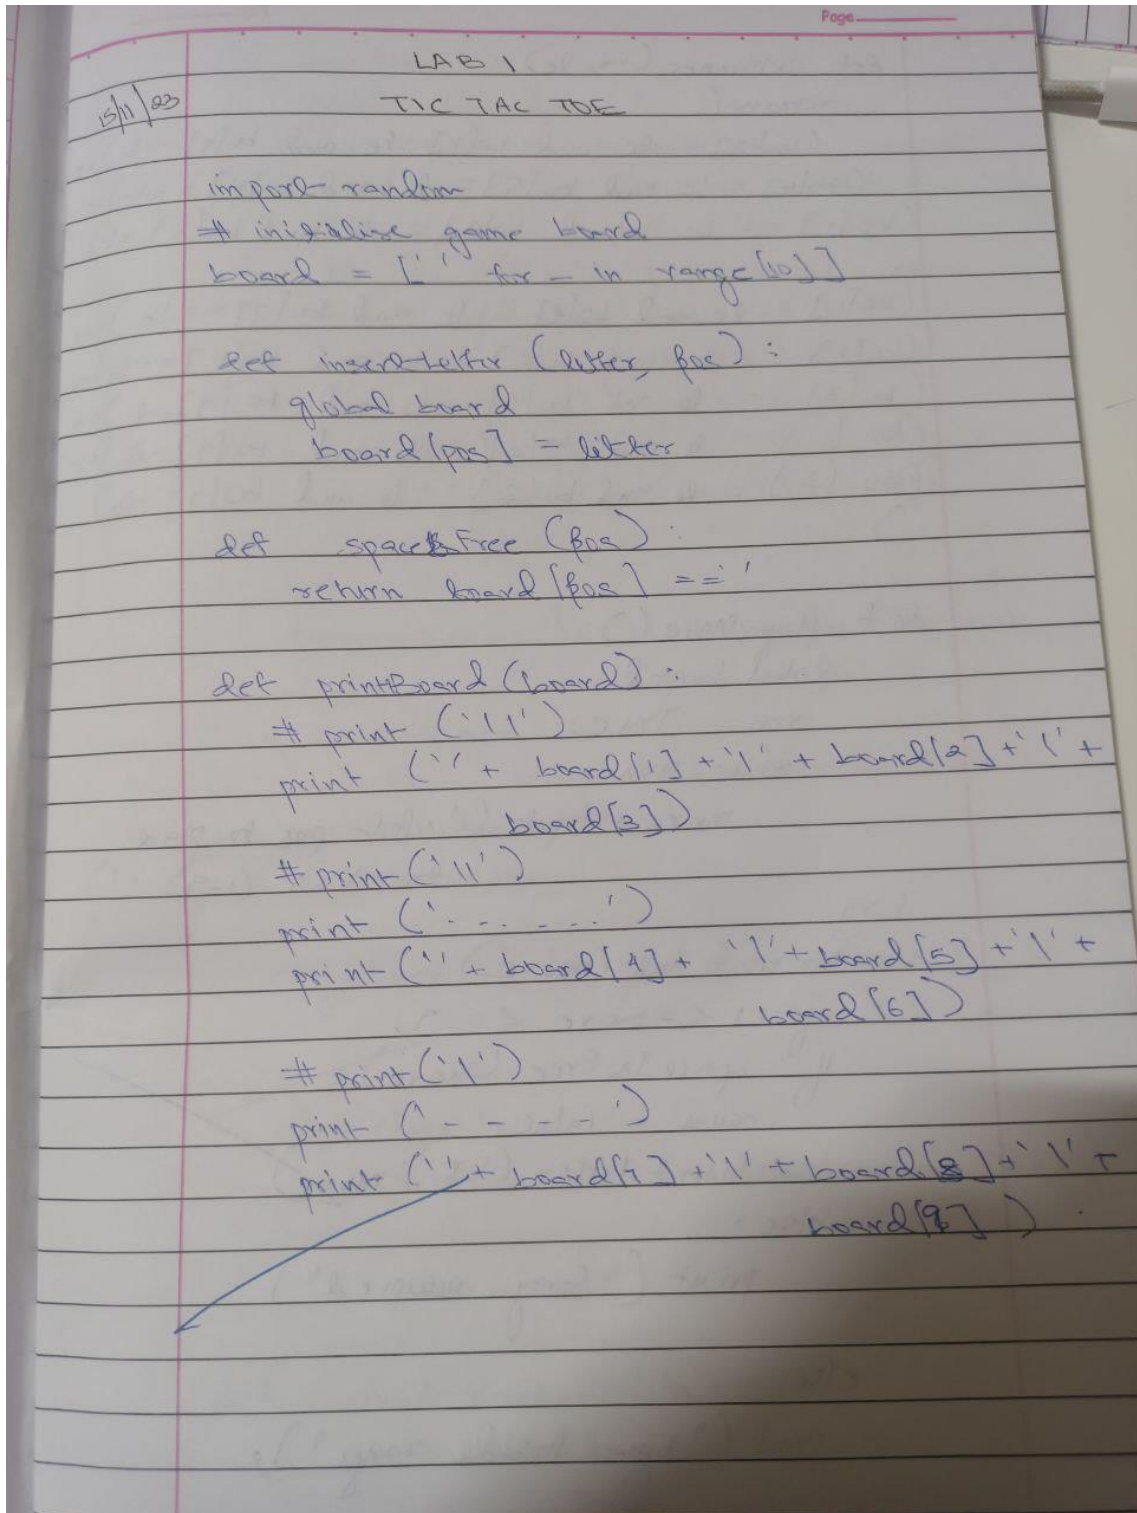 Page
LAB 1
15/11/23
TIC TAC TOE
import random
# initialise game board
board = [' ' for _ in range[10]]
def insertLetter (letter, pos) :
global board
board[pos] = letter
def spaceIsFree (pos) :
return board[pos] == ' '
def printBoard (board) :
# print ('||')
print (' ' + board[1] + '|' + board[2] + '|' +
board[3])
# print ('||')
print ('- - - - - -')
print (' ' + board[4] + '|' + board[5] + '|' +
board[6])
# print ('|')
print ('- - - - -')
print (' ' + board[7] + '|' + board[8] + '|' +
board[9])